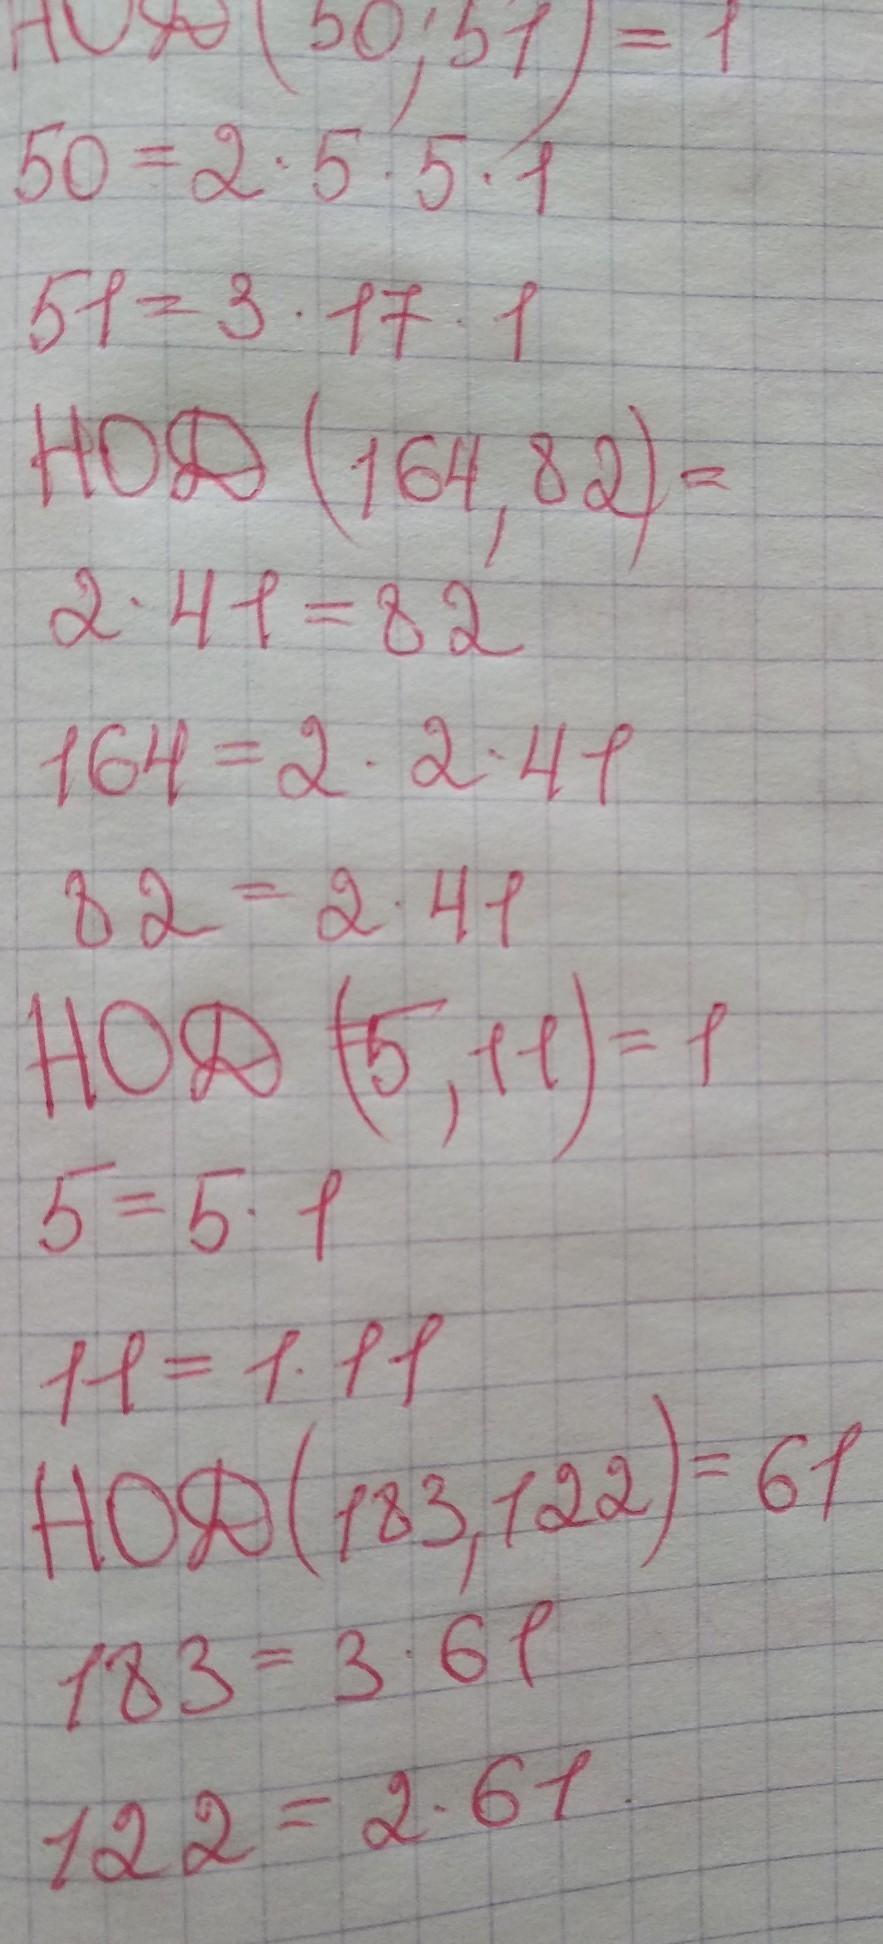 НОД (50; 51) = 1
50 = 2 · 5 · 5 · 1
51 = 3 · 17 · 1
НОД (164, 82) =
2 · 41 = 82
164 = 2 · 2 · 41
82 = 2 · 41
НОД (5, 11) = 1
5 = 5 · 1
11 = 1 · 11
НОД (183, 122) = 61
183 = 3 · 61
122 = 2 · 61